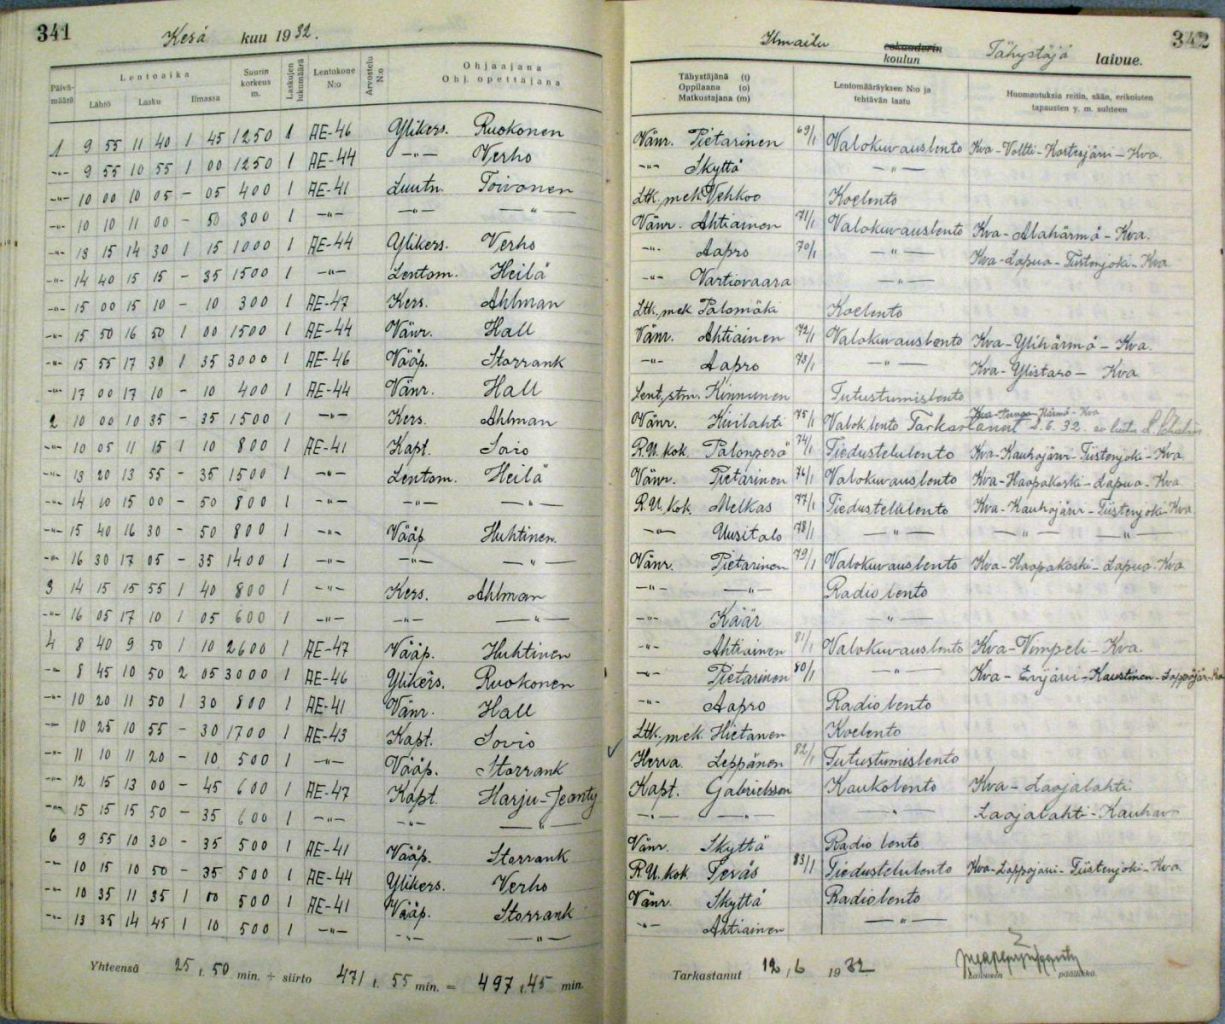 341
Kesä kuu 1932.
Päivä-määrä Lentoaika Suurin korkeus m. Laskujen lukumäärä Lentokone N:o Arvostelu N:o Ohjaajana Ohj. opettajana
Lähtö Lasku Ilmassa
1 9 55 11 40 1 45 1250 1 AE-46 Ylikers. Ruokonen
-"- 9 55 10 55 1 00 1250 1 AE-44 -"- Verho
-"- 10 00 10 05 - 05 400 1 AE-41 Luutn. Toivonen
-"- 10 10 11 00 - 50 300 1 -"- -"- -"-
-"- 13 15 14 30 1 15 1000 1 AE-44 Ylikers. Verho
-"- 14 40 15 15 - 35 1500 1 -"- Lentom. Heilä
-"- 15 00 15 10 - 10 300 1 AE-47 Kers. Ahlman
-"- 15 50 16 50 1 00 1500 1 AE-44 Vänr. Hall
-"- 15 55 17 30 1 35 3000 1 AE-46 Vääp. Storrank
-"- 17 00 17 10 - 10 400 1 AE-44 Vänr. Hall
2 10 00 10 35 - 35 1500 1 -"- Kers. Ahlman
-"- 10 05 11 15 1 10 800 1 AE-41 Kapt. Sovio
-"- 13 20 13 55 - 35 1500 1 -"- Lentom. Heilä
-"- 14 10 15 00 - 50 800 1 -"- -"- -"-
-"- 15 40 16 30 - 50 800 1 -"- Vääp Huhtinen
-"- 16 30 17 05 - 35 1400 1 -"- -"- -"-
3 14 15 15 55 1 40 800 1 -"- Kers. Ahlman
-"- 16 05 17 10 1 05 600 1 -"- -"- -"-
4 8 40 9 50 1 10 2600 1 AE-47 Vääp. Huhtinen
-"- 8 45 10 50 2 05 3000 1 AE-46 Ylikers. Ruokonen
-"- 10 20 11 50 1 30 800 1 AE-41 Vänr. Hall
-"- 10 25 10 55 - 30 1700 1 AE-43 Kapt. Sovio
-"- 11 10 11 20 - 10 500 1 -"- Vääp. Storrank
-"- 12 15 13 00 - 45 600 1 AE-47 Kapt. Harju-Jeanty
-"- 15 15 15 50 - 35 600 1 -"- -"- -"-
6 9 55 10 30 - 35 500 1 AE-41 Vääp. Storrank
-"- 10 15 10 50 - 35 500 1 AE-44 Ylikers. Verho
-"- 10 35 11 35 1 00 500 1 AE-41 Vääp. Storrank
-"- 13 35 14 45 1 10 500 1 -"- -"- -"-
Yhteensä 25 t. 50 min. + siirto 471 t. 55 min. = 497 t. 45 min.
342
Ilmailu eskaaderin koulun Tähystäjä laivue.
Tähystäjänä (t) Oppilaana (o) Matkustajana (m) Lentomääräyksen N:o ja tehtävän laatu Huomautuksia reitin, sään, erikoisten tapausten y. m. suhteen
Vänr. Pietarinen 69/1 Valokuvauslento Kva-Voltti-Kortesjärvi-Kva.
-"- Skyttä -"-
Ltk. mek. Vehkoo Koelento
Vänr. Ahtiainen 71/1 Valokuvauslento Kva-Alahärmä-Kva.
-"- Aapro 70/1 -"- Kva-Lapua-Tiistenjoki-Kva
-"- Vartiovaara -"-
Ltk. mek Palomäki Koelento
Vänr. Ahtiainen 72/1 Valokuvauslento Kva-Ylihärmä-Kva.
-"- Aapro 73/1 -"- Kva-Ylistaro-Kva
Lent. stm. Kinnunen Tutustumislento
Vänr. Kivilahti 75/1 Valok. lento Tarkastanut 2.6.32.
R.U.kok. Palonperä 74/1 Tiedustelulento Kva-Kauhajärvi-Tiistenjoki-Kva
Vänr. Pietarinen 76/1 Valokuvauslento Kva-Haapakoski-Lapua-Kva
R.U.kok. Melkas 77/1 Tiedustelulento Kva-Kauhajärvi-Tiistenjoki-Kva
-"- Uusitalo 78/1 -"- -"- -"-
Vänr. Pietarinen 79/1 Valokuvauslento Kva-Haapakoski-Lapua-Kva
-"- -"- Radiolento
-"- Käär -"-
-"- Ahtiainen 81/1 Valokuvauslento Kva-Vimpeli-Kva.
-"- Pietarinen 80/1 -"- Kva-Evijärvi-Kaustinen-Lappajär-Kva
-"- Aapro Radiolento
Ltk. mek. Hietanen Koelento
Herra Leppänen 82/1 Tutustumislento
Kapt. Gabrielsson Kaukolento Kva-Laajalahti
-"- -"- -"- Laajalahti-Kauhava
Vänr. Skyttä Radiolento
R.U.kok Teräs 83/1 Tiedustelulento Kva-Lappajärvi-Tiistenjoki-Kva
Vänr. Skyttä Radiolento
-"- Ahtiainen -"-
Tarkastanut 12/6 1932 päällikkö.